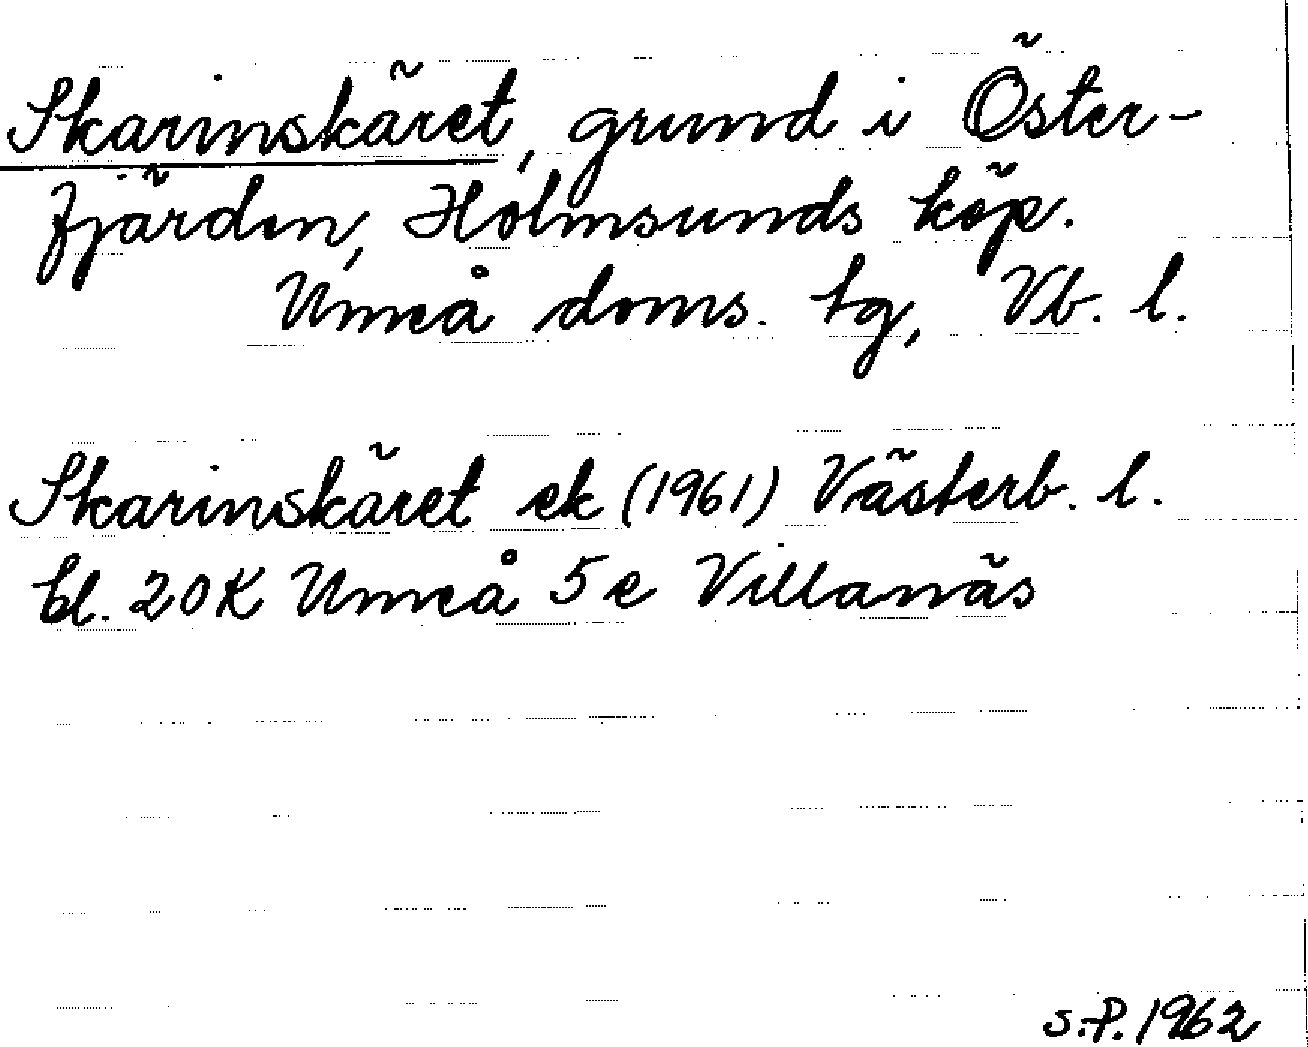 Skarinskäret, grund i Öster-
fjärden, Holmsunds köp.
Umeå doms. tg, Vb. l.
Skarinskäret ek (1961) Västerb. l.
bl. 20K Umeå 5e Villanäs
S.P. 1962